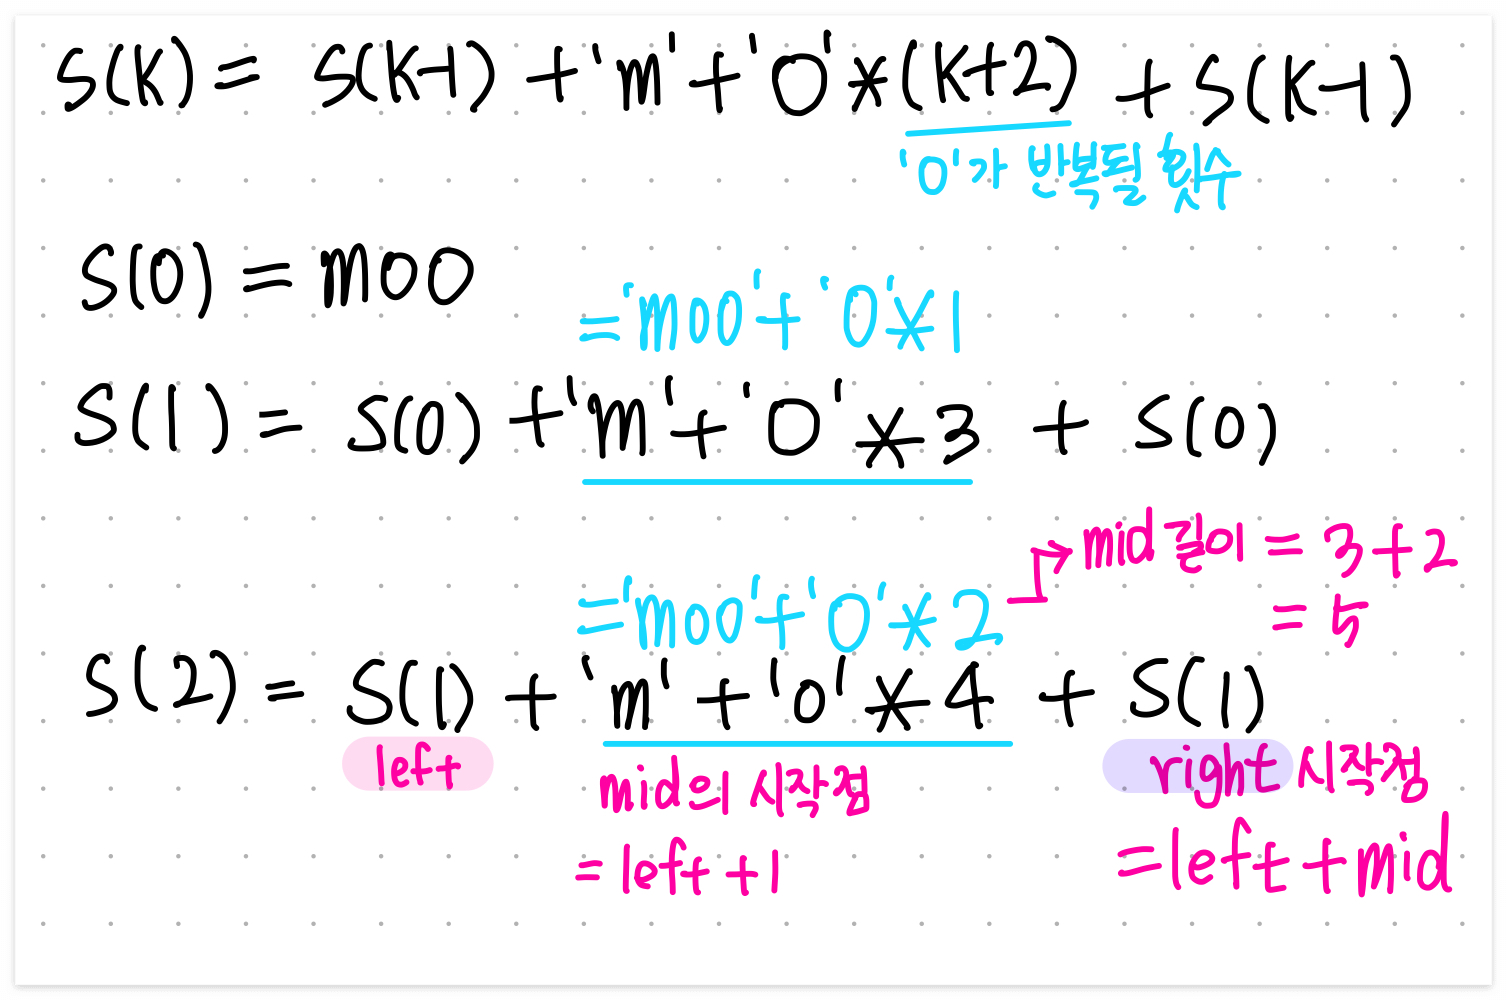 S(K) = S(K-1) + 'm' + 'O' * (K+2) + S(K-1)
'O'가 반복될 횟수
S(0) = moo
= 'moo' + 'O' * 1
S(1) = S(0) + 'm' + 'O' * 3 + S(0)
mid 길이 = 3+2
= 5
= 'moo' + 'O' * 2
S(2) = S(1) + 'm' + 'o' * 4 + S(1)
left
mid의 시작점
= left + 1
right 시작점
= left + mid